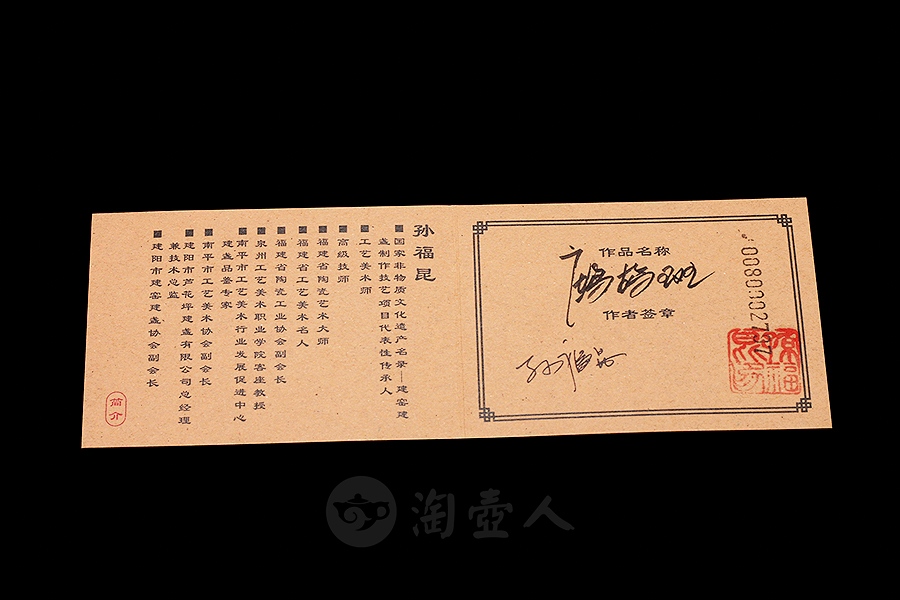 孙福昆
■国家非物质文化遗产名录—建窑建
盏制作技艺项目代表性传承人
■工艺美术师
■高级技师
■福建省陶瓷艺术大师
■福建省工艺美术名人
■福建省陶瓷工业协会副会长
■泉州工艺美术职业学院客座教授
■南平市工艺美术行业发展促进中心
建盏品鉴专家
■南平市工艺美术协会副会长
■建阳市芦花坪建盏有限公司总经理
兼技术总监
■建阳市建窑建盏协会副会长
简介
作品名称
鹧鸪斑
作者签章
孙福昆
淘壶人